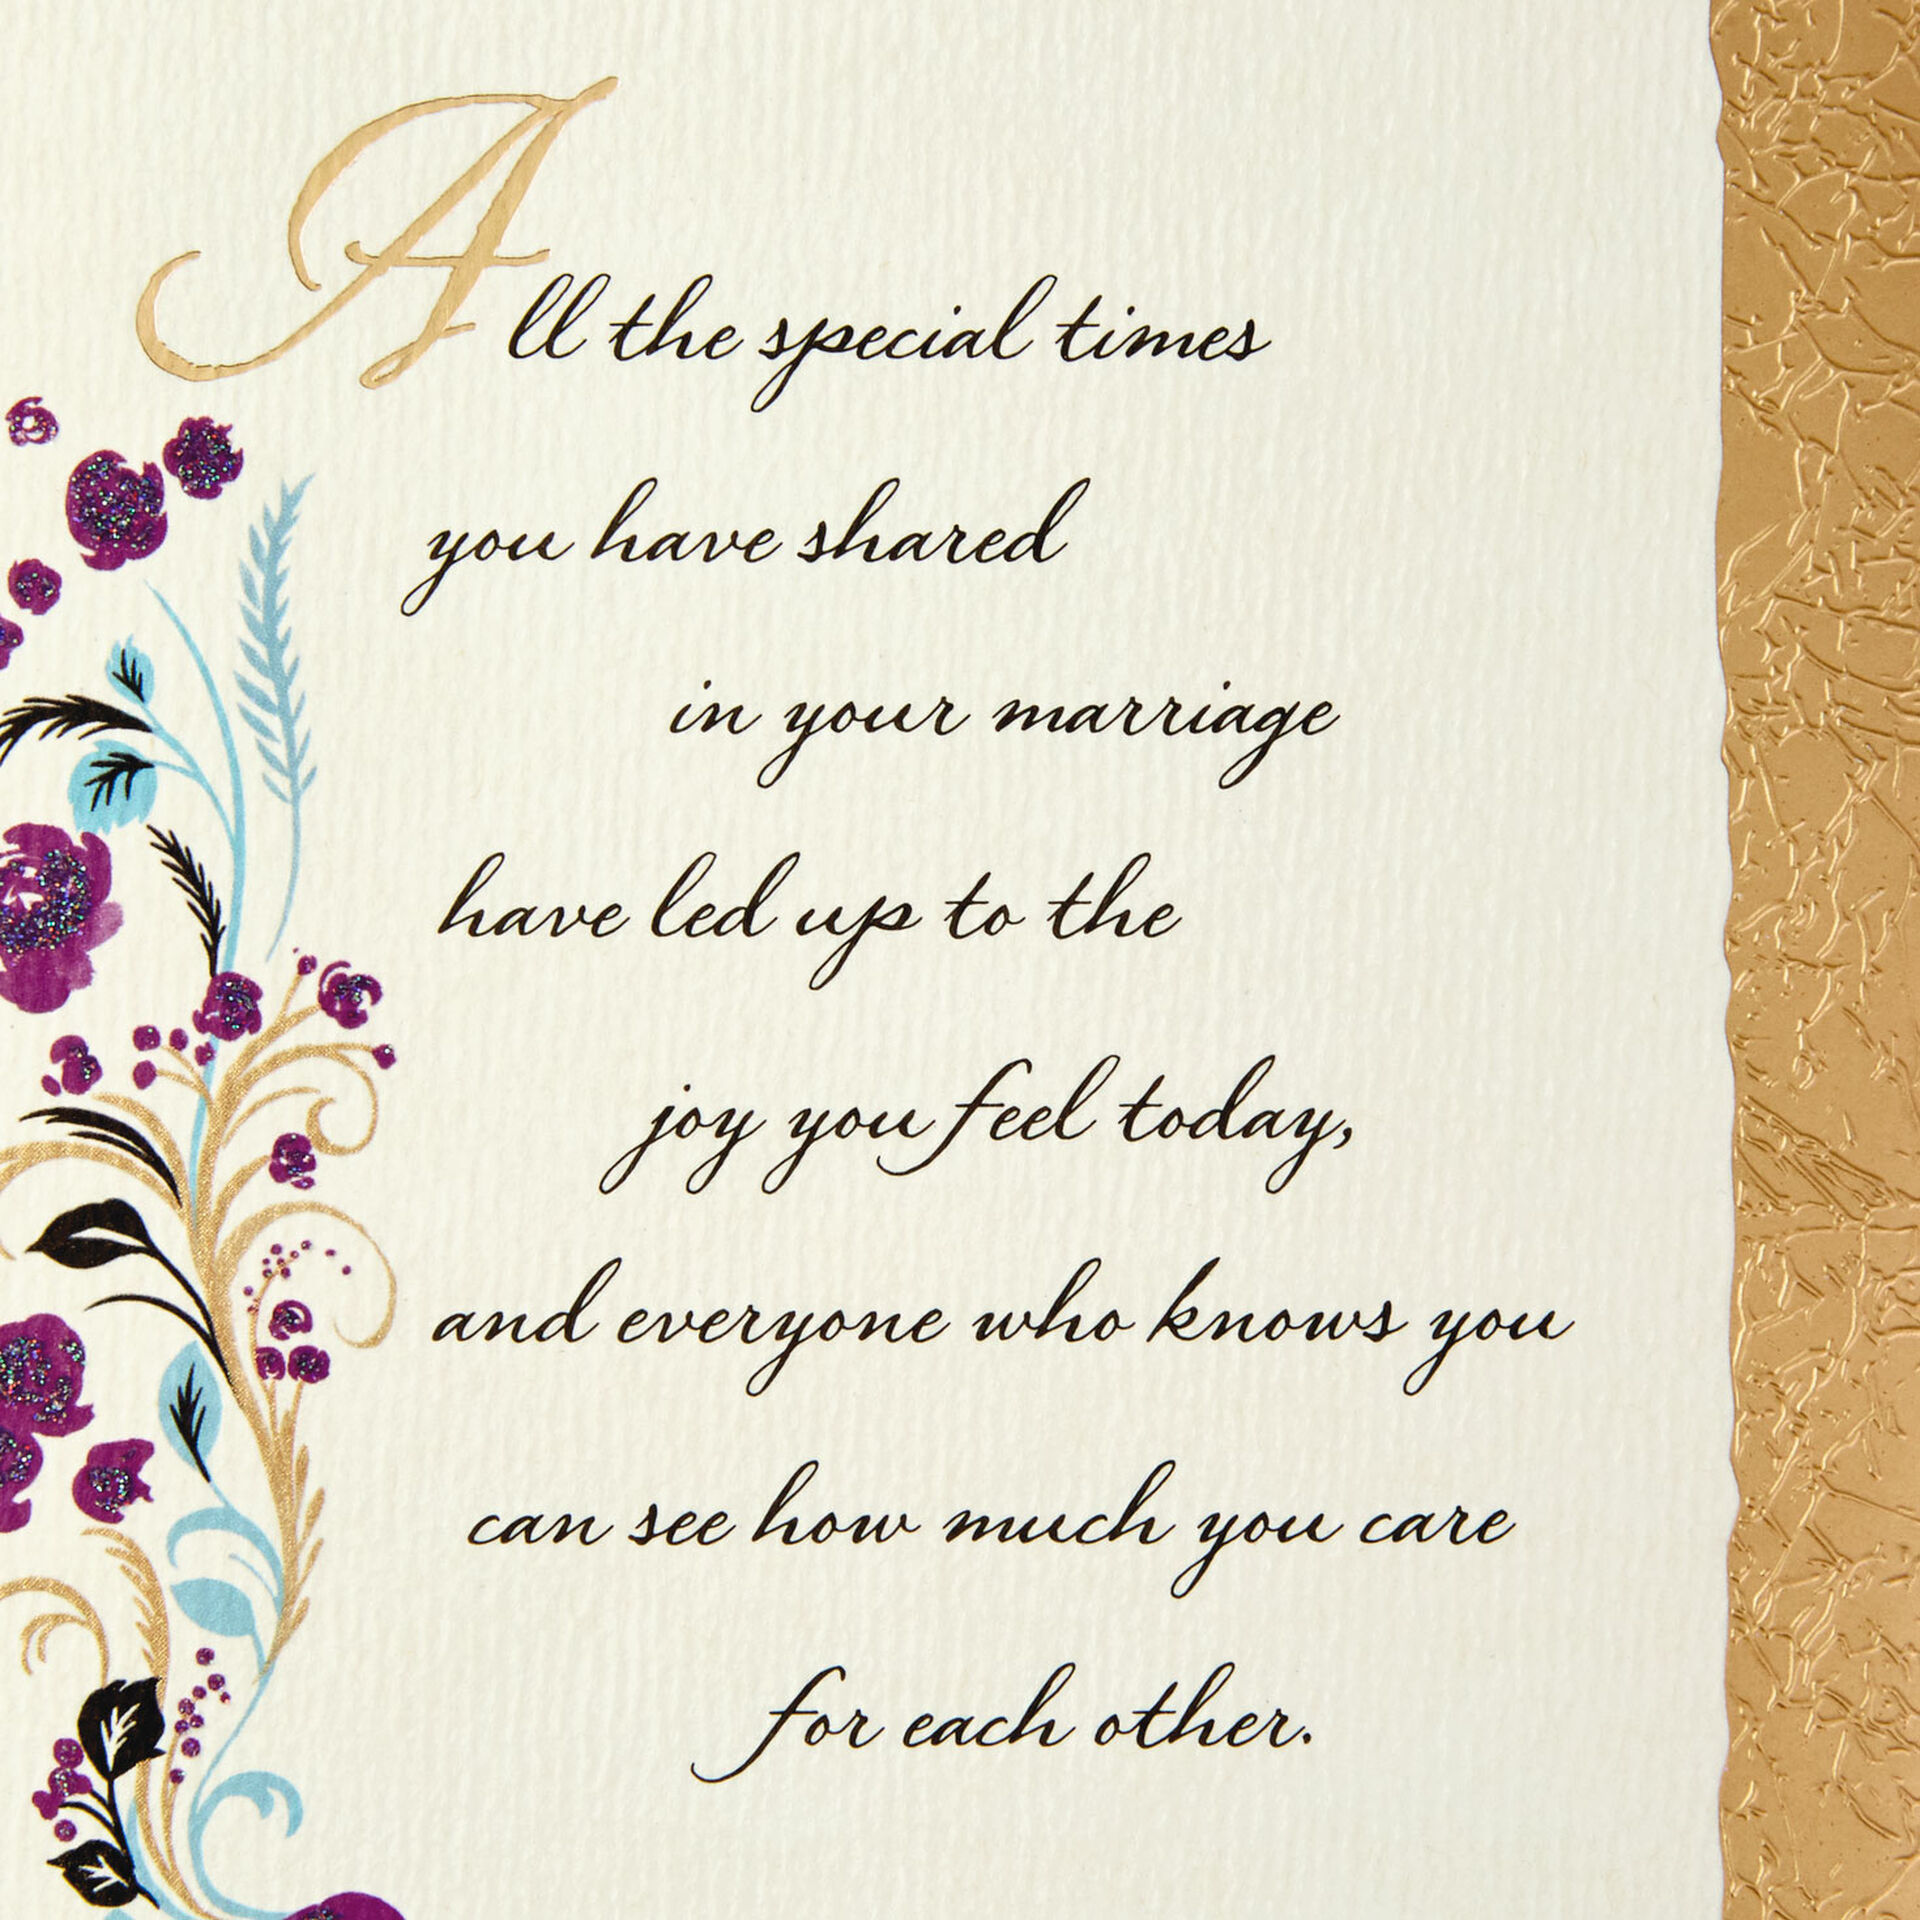 All the special times
you have shared
in your marriage
have led up to the
joy you feel today,
and everyone who knows you
can see how much you care
for each other.